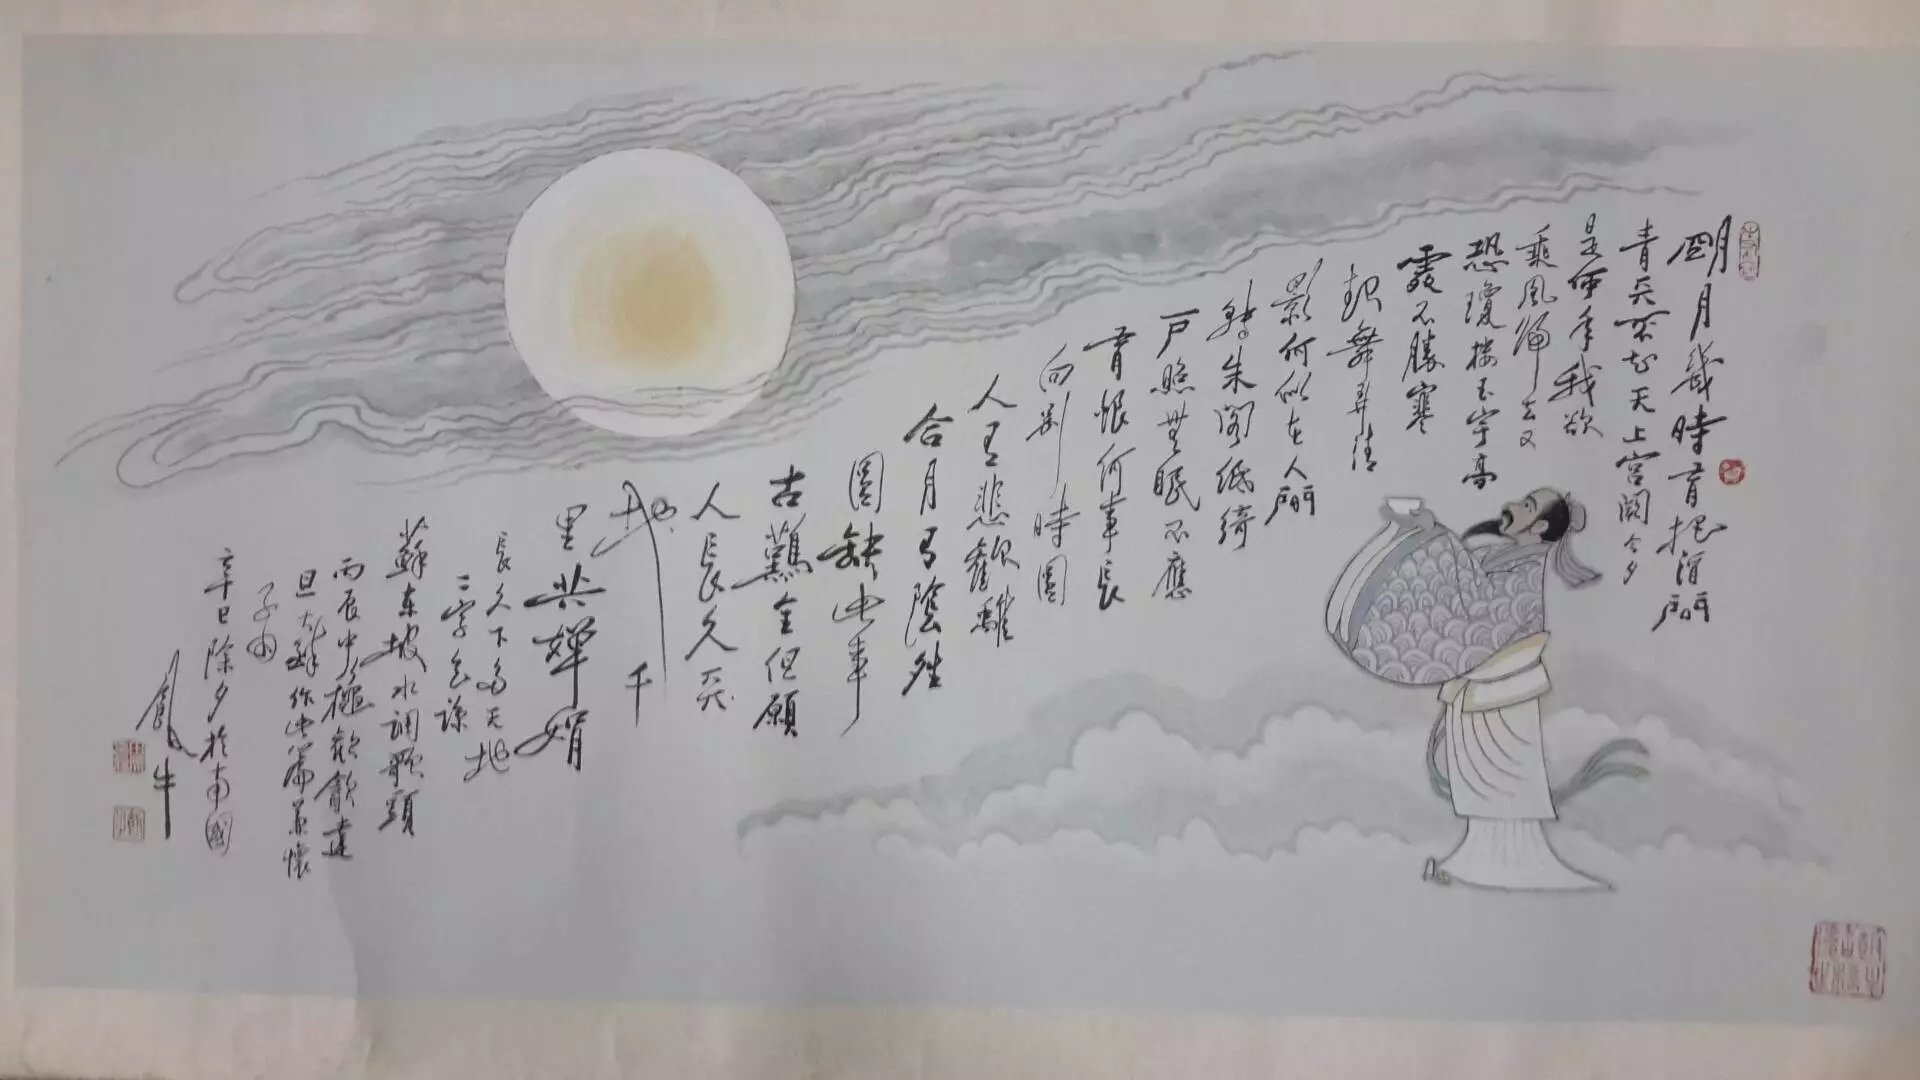 朙月幾時有把酒問
青天不知天上宮闕今夕
是何年我欲
乘風歸去又
恐瓊樓玉宇高
處不勝寒
起舞弄清
影何似在人間
轉朱閣低綺
戶照無眠不應
有恨何事長
向別時圓
人有悲歡離
合月有陰
圓缺此事
古難全但願
人長久天
地千
里共嬋娟
長久下多天地
二字
蘇東坡水調歌頭
丙辰中秋歡飲達
旦大醉作此篇兼懷
子由
辛巳除夕於南國
牛